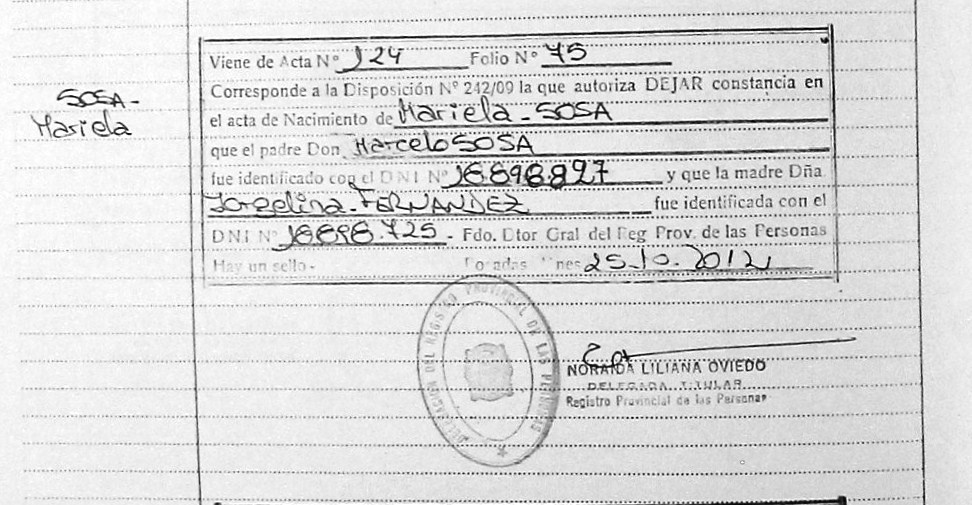 SOSA-
Mariela
Viene de Acta Nº 124 Folio Nº 75
Corresponde a la Disposición Nº 242/09 la que autoriza DEJAR constancia en
el acta de Nacimiento de Mariela - SOSA
que el padre Don Marcelo SOSA
fue identificado con el DNI Nº y que la madre Dña
Jorgelina - FERNANDEZ fue identificada con el
DNI Nº - Fdo. Dtor Gral del Reg Prov. de las Personas
Hay un sello - Posadas Mnes 25-10-2012
DELEGACION DEL REGISTRO PROVINCIAL DE LAS PERSONAS
NORAIDA LILIANA OVIEDO
DELEGADA TITULAR
Registro Provincial de las Personas